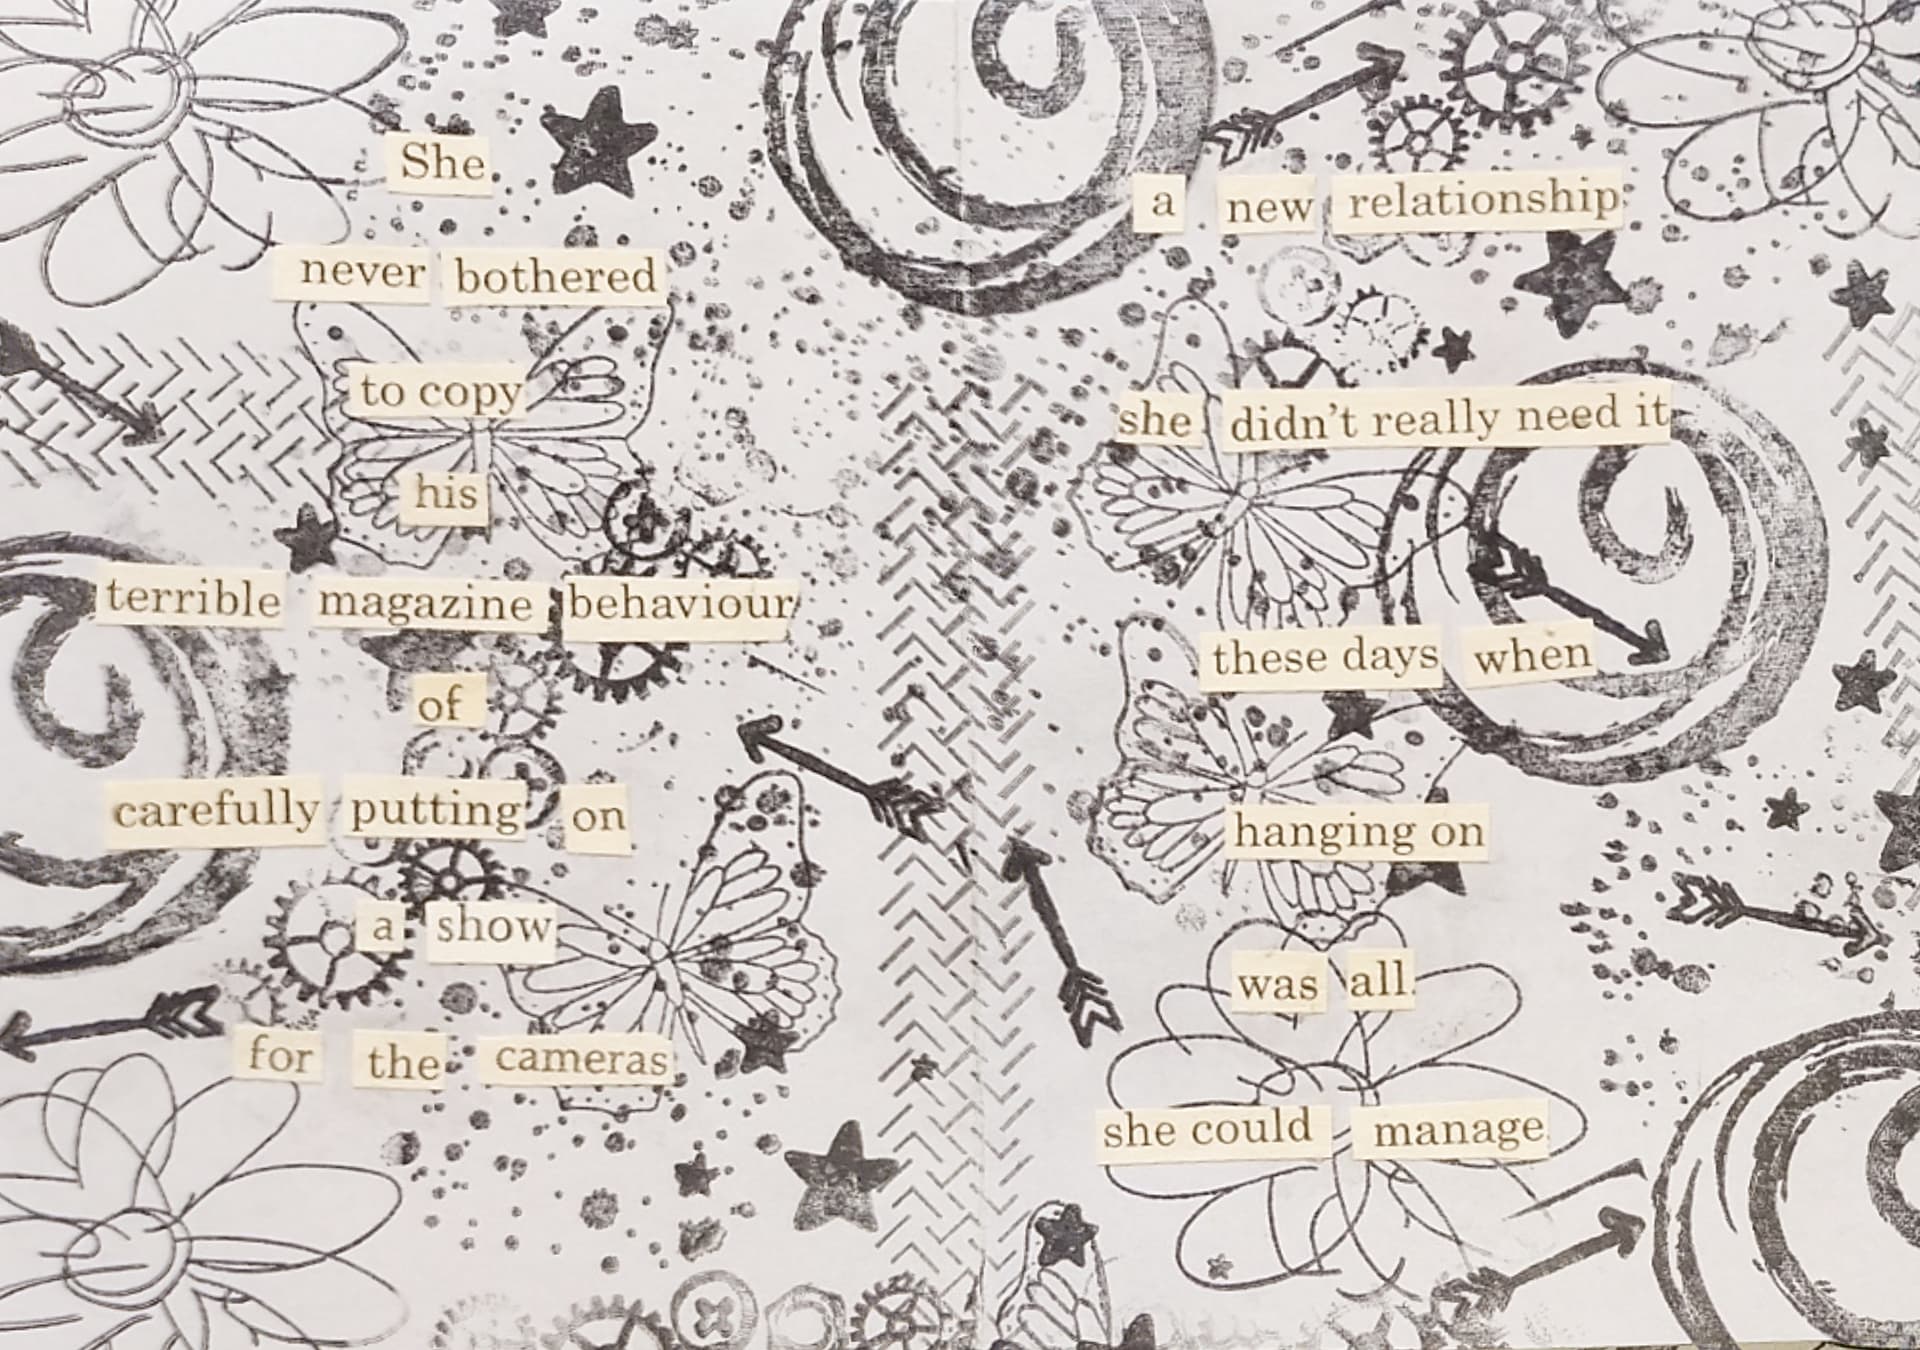 She
never bothered
to copy
his
terrible magazine behaviour
of
carefully putting on
a show
for the cameras
a new relationship
she didn't really need it
these days when
hanging on
was all
she could manage